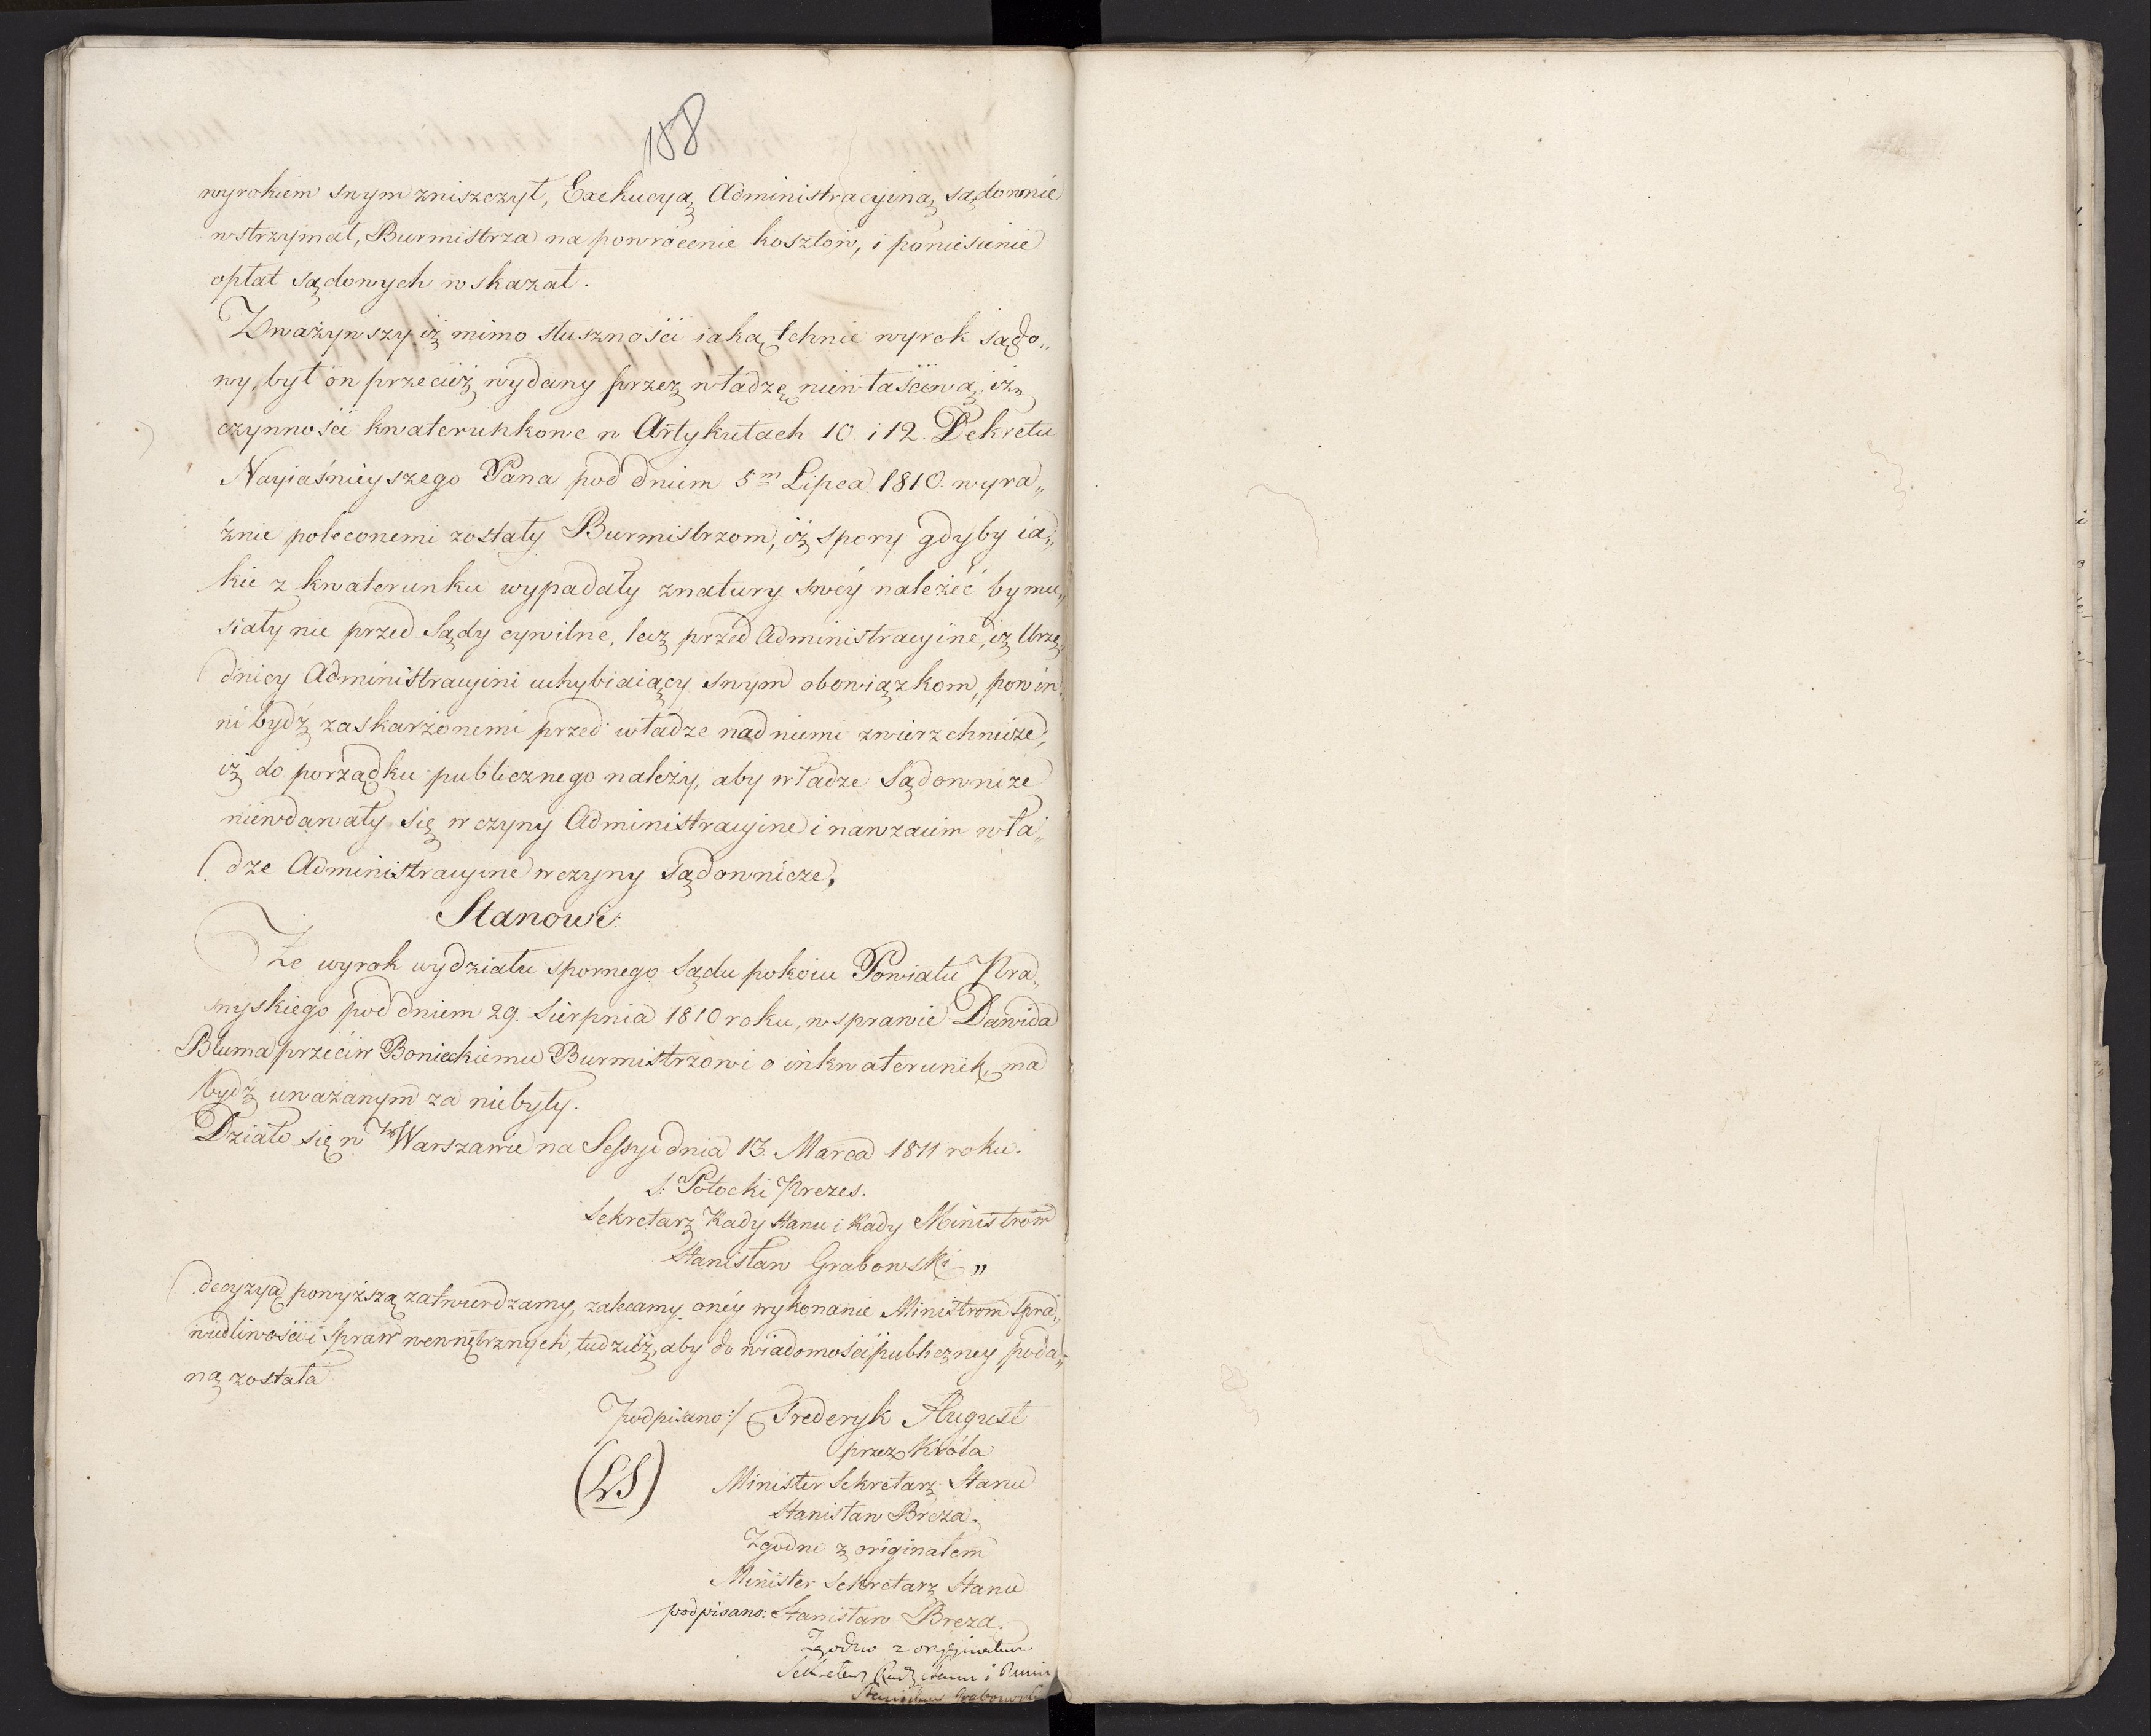 188
wyrokiem swym zniszczył, Exekucyą Administracyiną sądownie
wstrzymał, Burmistrza na powrócenie kosztów, i poniesienie
opłat sądowych wskazał.
Zważywszy iż mimo słuszności iaką tchnie wyrok sądo„
wy, był on przecież wydany przez władzę niewłaściwą, iż
czynności kwaterunkowe w Artykułach 10. i 12. Dekretu
Nayiaśnieyszego Pana pod dniem 5m Lipca 1810. wyra„
źnie poleconemi zostały Burmistrzom, iż spory gdyby ia„
kie z kwaterunku wypadały z natury swéy należéć by mu„
siały nie przed Sądy cywilne, lecz przed Administracyine, iż Urzę„
dnicy Administracyini uchybiaiący swym obowiązkom, powin„
ni bydź zaskarżonemi przed władze nad niemi zwierzchnicze,
iż do porządku publicznego należy, aby władze Sądownicze
niewdawały się w czyny Administracyine i nawzaiem wła„
dze Administracyine w czyny Sądownicze,
Stanowi:
Że wyrok wydziału spornego Sądu pokoiu Powiatu Pra„
snyskiego pod dniem 29. Sierpnia 1810 roku, w sprawie Dawida
Bluma przeciw Bonieckiemu Burmistrzowi o inkwaterunek, ma
bydź uważanym za niebyły.
Działo się w Warszawie na Sessyi dnia 13. Marca 1811 roku.
S. Potocki Prezes.
Sekretarz Rady Stanu i Rady Ministrów
Stanisław Grabowski „
Decyzyą powyższą zatwierdzamy, zalecamy onéy wykonanie Ministrom Spra„
wiedliwości i Spraw wewnętrznych, tudzież, aby do wiadomości publiczney poda„
ną została
Podpisano:/ Frederyk August
przez Króla
(LS) Minister Sekretarz Stanu
Stanisław Breza.
Zgodno z originałem
Minister Sekretarz Stanu
podpisano: Stanisław Breza.
Zgodno z oryginałem
Sekretarz Rady Stanu i
Stanisław Grabowski